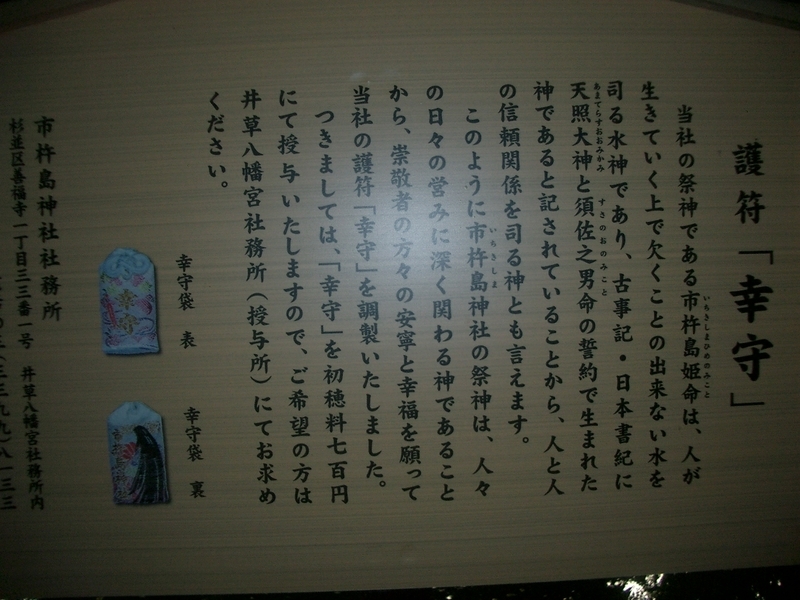 護符「幸守」
当社の祭神である市杵島姫命は、人が
いちきしまひめのみこと
生きていく上で欠くことの出来ない水を
司る水神であり、古事記・日本書紀に
天照大神と須佐之男命の誓約で生まれた
あまてらすおおみかみ
すさのおのみこと
神であると記されていることから、人と人
の信頼関係を司る神とも言えます。
このように市杵島神社の祭神は、人々
いちきしま
の日々の営みに深く関わる神であること
から、崇敬者の方々の安寧と幸福を願って
当社の護符「幸守」を調製いたしました。
つきましては、「幸守」を初穂料七百円
にて授与いたしますので、ご希望の方は
井草八幡宮社務所(授与所)にてお求め
ください。
幸守袋 表
幸守袋 裏
市杵島神社社務所
杉並区善福寺一丁目三三番一号 井草八幡宮社務所内